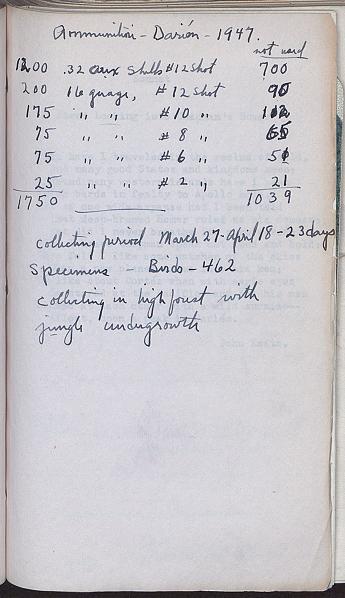 Ammunition - Darién - 1947.
not used
1200 .32 aux shells #12 shot 700
200 16 guage, #12 shot 90
175 " " #10 " 112
75 " " #8 " 65
75 " " #6 " 51
25 " " # " 21
1750 1039
collecting period March 27-April 18 - 23 days
Specimens - Birds - 462
collecting in high forest with
jungle undergrowth